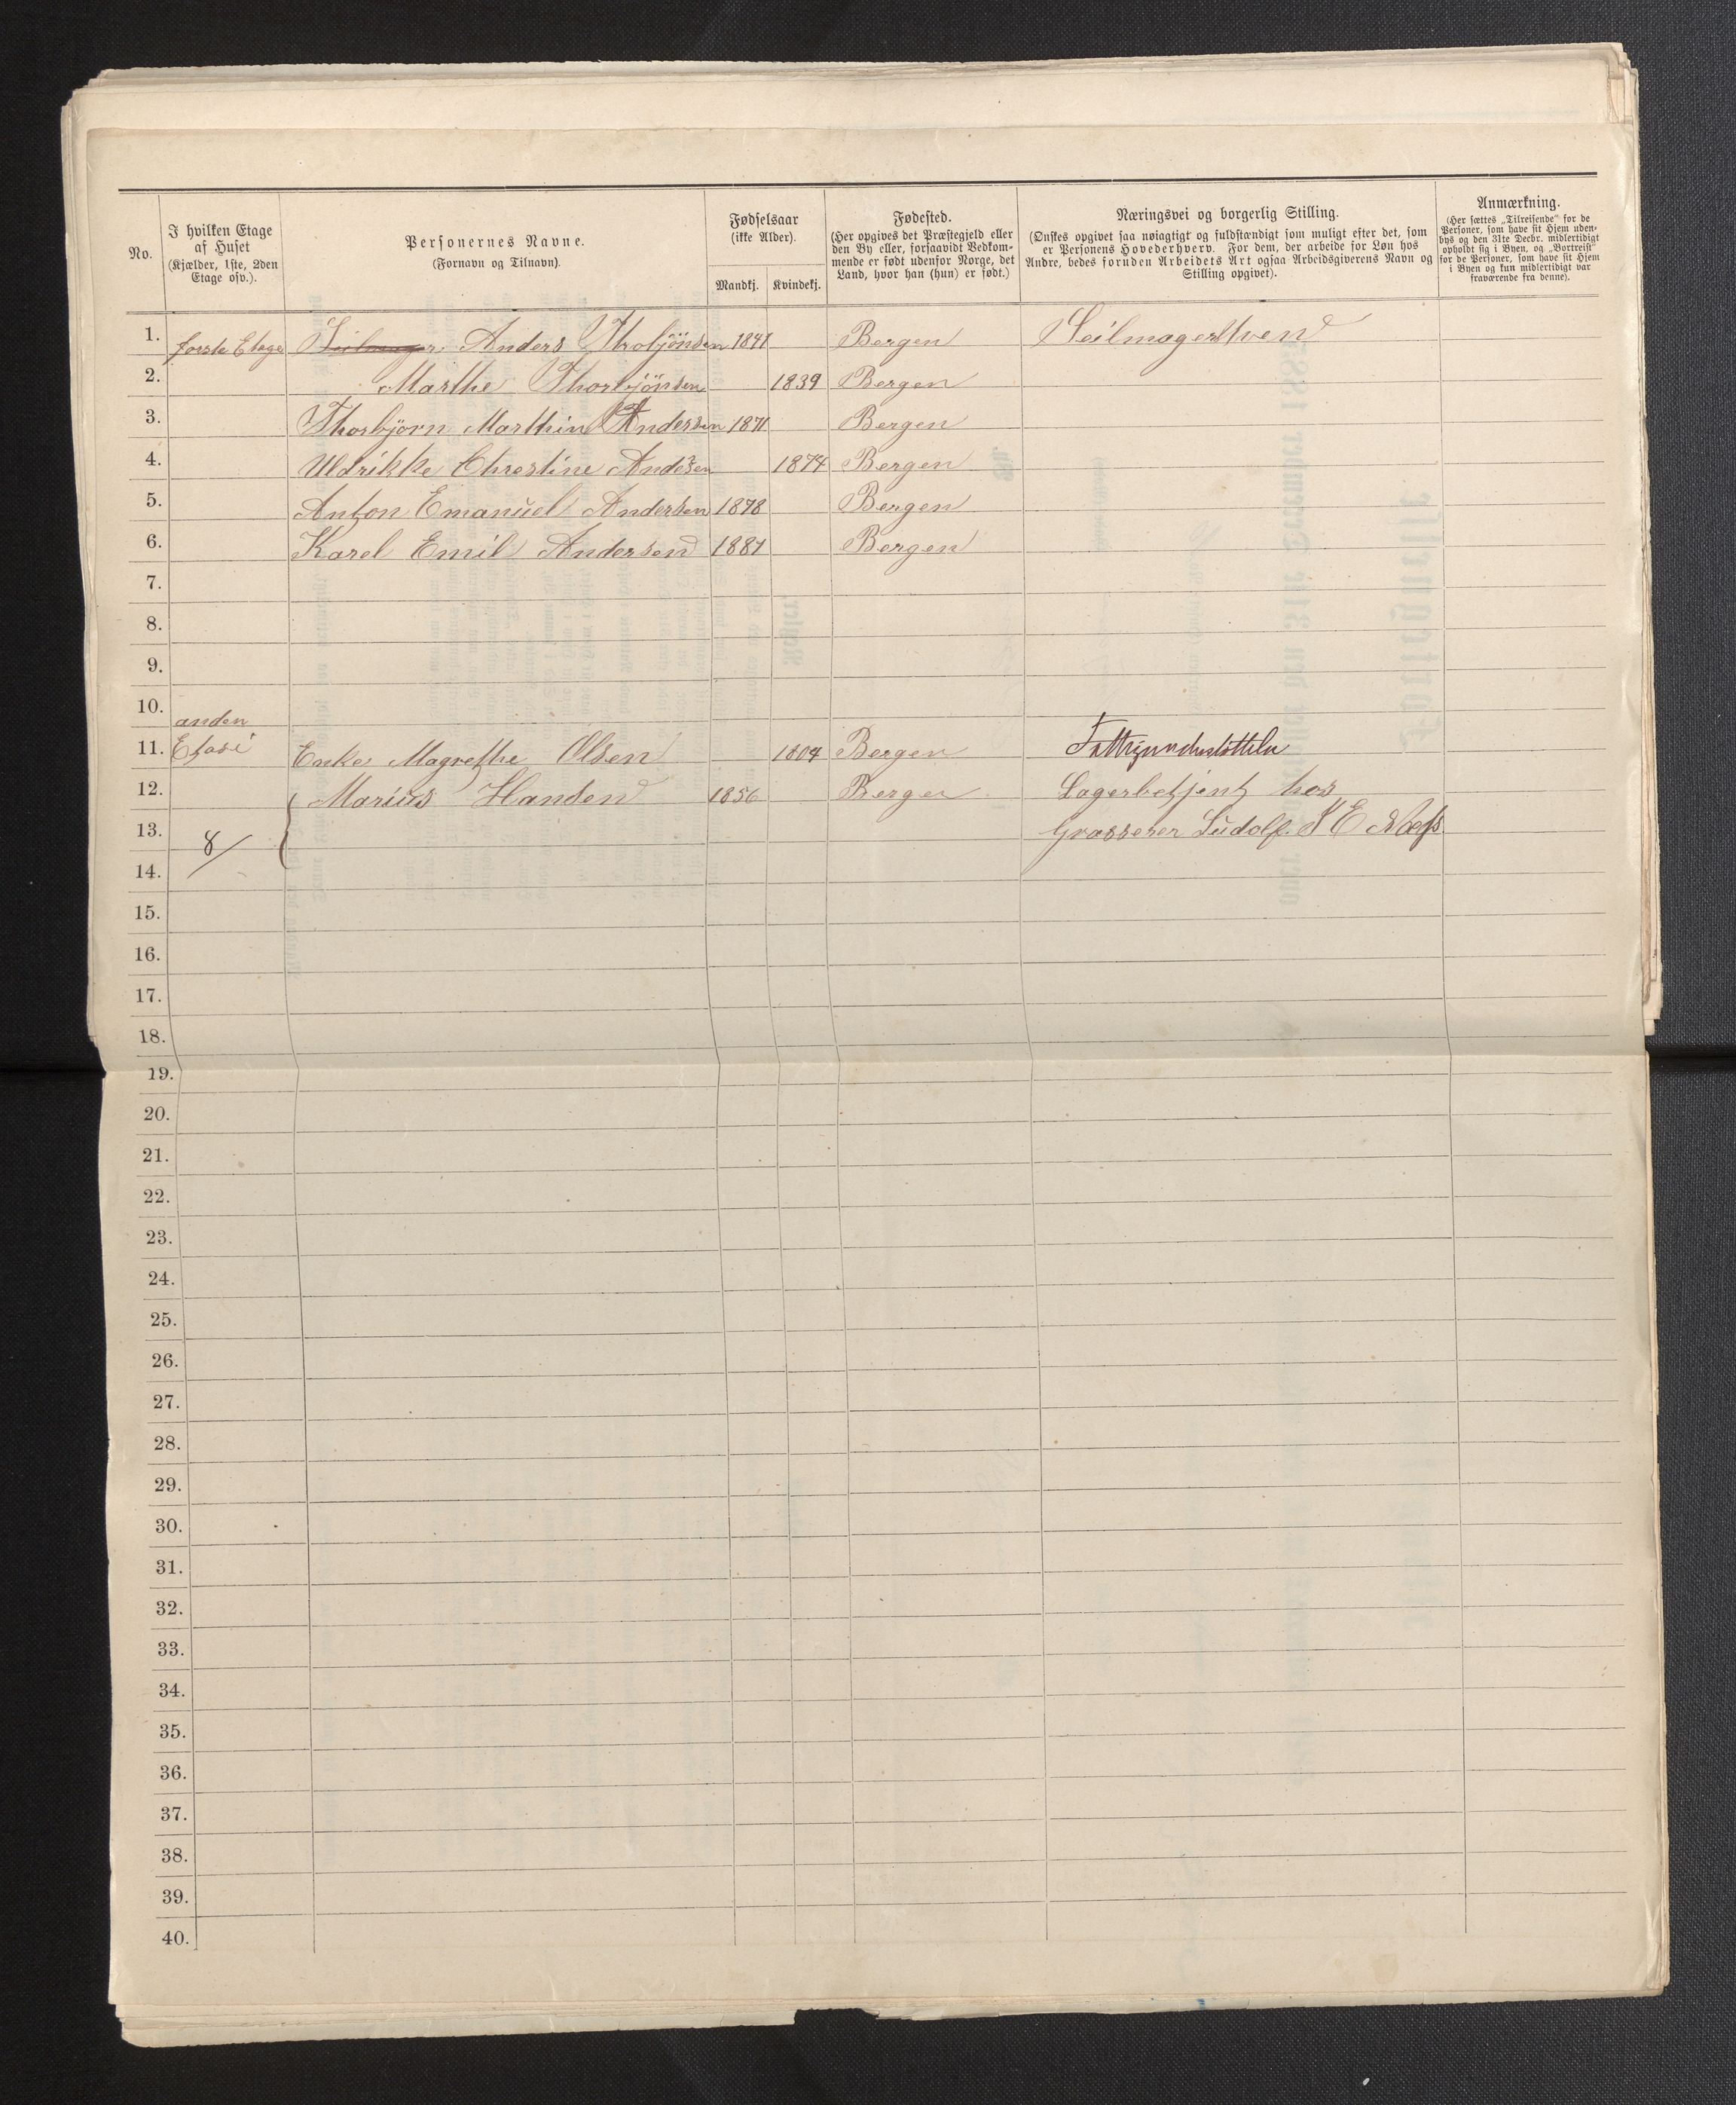 No.
I hvilken Etage af Huset (Kjælder, 1ste, 2den Etage osv.).
Personernes Navne. (Fornavn og Tilnavn).
Fødselsaar (ikke Alder).
Mandkj. Kvindekj.
Fødested. (Her opgives det Præstegjeld eller den By eller, forsaavidt Vedkommende er født udenfor Norge, det Land, hvor han (hun) er født.)
Næringsvei og borgerlig Stilling. (Ønskes opgivet saa nøiagtigt og fuldstændigt som muligt efter det, som er Personens Hovederhverv. For dem, der arbeide for Løn hos Andre, bedes foruden Arbeidets Art ogsaa Arbeidsgiverens Navn og Stilling opgivet).
Anmærkning. (Her sættes „Tilreisende“ for de Personer, som have sit Hjem udenbys og den 31te Decbr. midlertidigt opholdt sig i Byen, og „Bortreist“ for de Personer, som have sit Hjem i Byen og kun midlertidigt var fraværende fra denne).
1. forste Etage Anders Throbjönsen 1841 Bergen Seilmagersven
2. Marthe Thorbjönsen 1839 Bergen
3. Thorbjorn Marthin Andersen 1871 Bergen
4. Uldrikke Chrestine Andersen 1874 Bergen
5. Anton Emanuel Andersen 1878 Bergen
6. Karel Emil Andersen 1881 Bergen
7.
8.
9.
10. anden
11. Etase Enke Magrethe Olsen 1804 Bergen
12. Marius Hansen 1856 Bergen Lagerbetjent hos
13. 8/ Grosserer Ludolf
14.
15.
16.
17.
18.
19.
20.
21.
22.
23.
24.
25.
26.
27.
28.
29.
30.
31.
32.
33.
34.
35.
36.
37.
38.
39.
40.